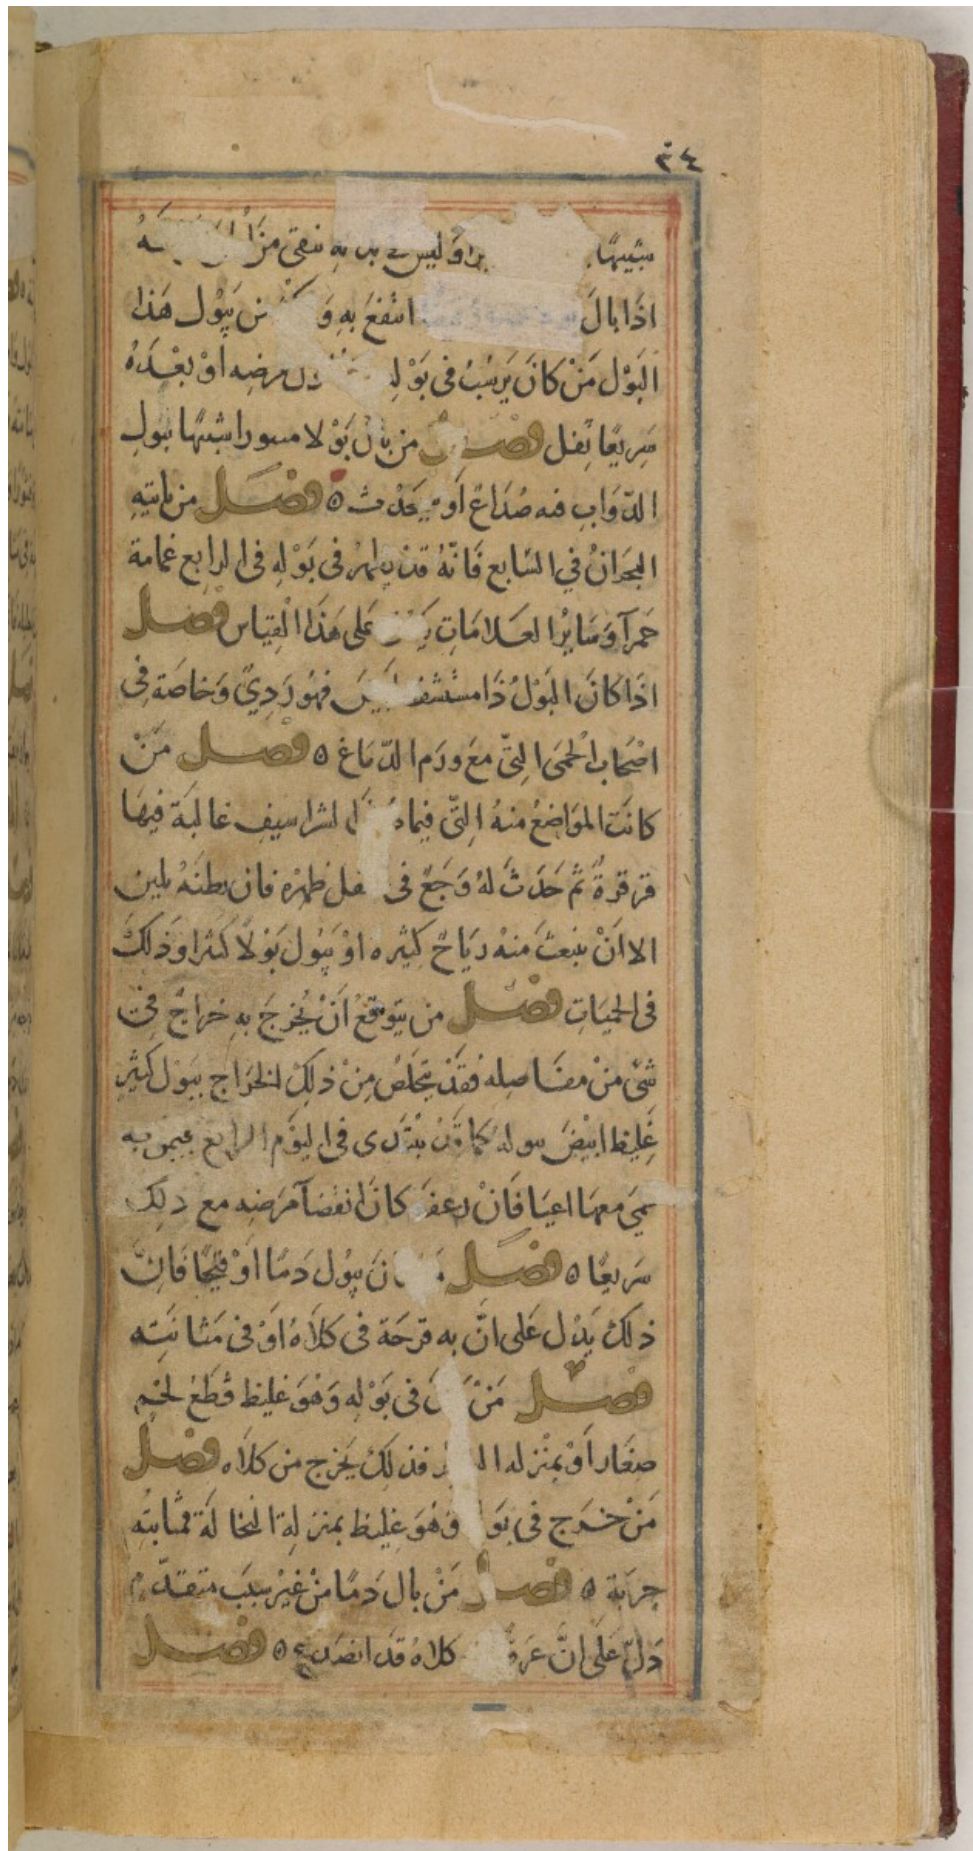 ٣٤
شبيهًا برا وليس بدنه نقي من
اذَا بالَ انتفعَ بهِ وَ من يَبُول هَذا
البَوْل مَنْ كانَ يَرسُبُ فى بَوْلهِ مرضِه اوْ بعْدَهُ
سَرِيعًا ثفل فصل من بال بَوْلا مىىورا شبيهًا ببولِ
الدّوَابِ فبه صُدَاعٌ اَو يحَدُث ه فصَل من ياتيهِ
البحَرانُ في السَّابع فَانّهُ قدْ يظهرُ فى بَوْلهِ فى الرابع غمامة
حمرآ وَسَايرُ العَلامَاتِ على هَذَا القِياس فصل
اذَا كانَ البَوْلُ ذَا مستشف ابيَض فهوُ رَدِيّ وَخاصَة فى
اصْحَاب الحُمىَ التّى معَ وَرَم الدّمَاغ ه فصل مَنْ
كانَت المَوَاضعُ منهُ التّى فيما الشراسيف عَاليَة فيهَا
قرقرةٌ ثم حَدَثَ لهُ وَجَعٌ فى سفل ظهرْهِ فان بطنَهُ يلين
الا اَنْ ينبعثَ منهُ ريَاحٌ كثيره اوْ يَبُول بَوْلاً كثيرا وَذلكَ
فى الحميَاتِ فصْل من يتوقعُ اَنْ يُخرجَ بهِ خراجٌ فى
شىً منْ مفَاصِلهِ فقَدْ يتخلَصُ مِنْ ذلِكَ الخرَاج ببَوْلٍ كَثيرٍ
غَليظ ابيَضَ يبوله كما قدْ يبتَدى فى اليوَم الرابع بمن به
حمى معهَا اعيَا فَانْ رعفَ كانَ انقضآ مَرَضِه مع ذلِكَ
سَرِيعًا ه فصَل مَن كانَ يَبُول دَمًا اَوْ قيْحًا فَاِنّ
ذلكَ يَدُل عَلى انَّ به قرحَة فى كلاَهُ اَوْ فى مَثانَتِه
فصْل مَنْ كانَ فى بَوْلهِ وَهْوَ غليظ قطعُ لحْم
صغار اَوْ بمنزله الشعر فذلكَ يَخرج من كلاَه فصْل
مَنْ خرَج فى بَوْله وَهُوَ غليظ بمنزلِة النخالَة فمثانتُه
جربَة ه فصْل مَنْ بال دَمًا منْ غَيْر سَبَب متقدّم
دَلّ عَلى انَّ عرَقًا فى كلاهُ قد انصَدع ه فصْل